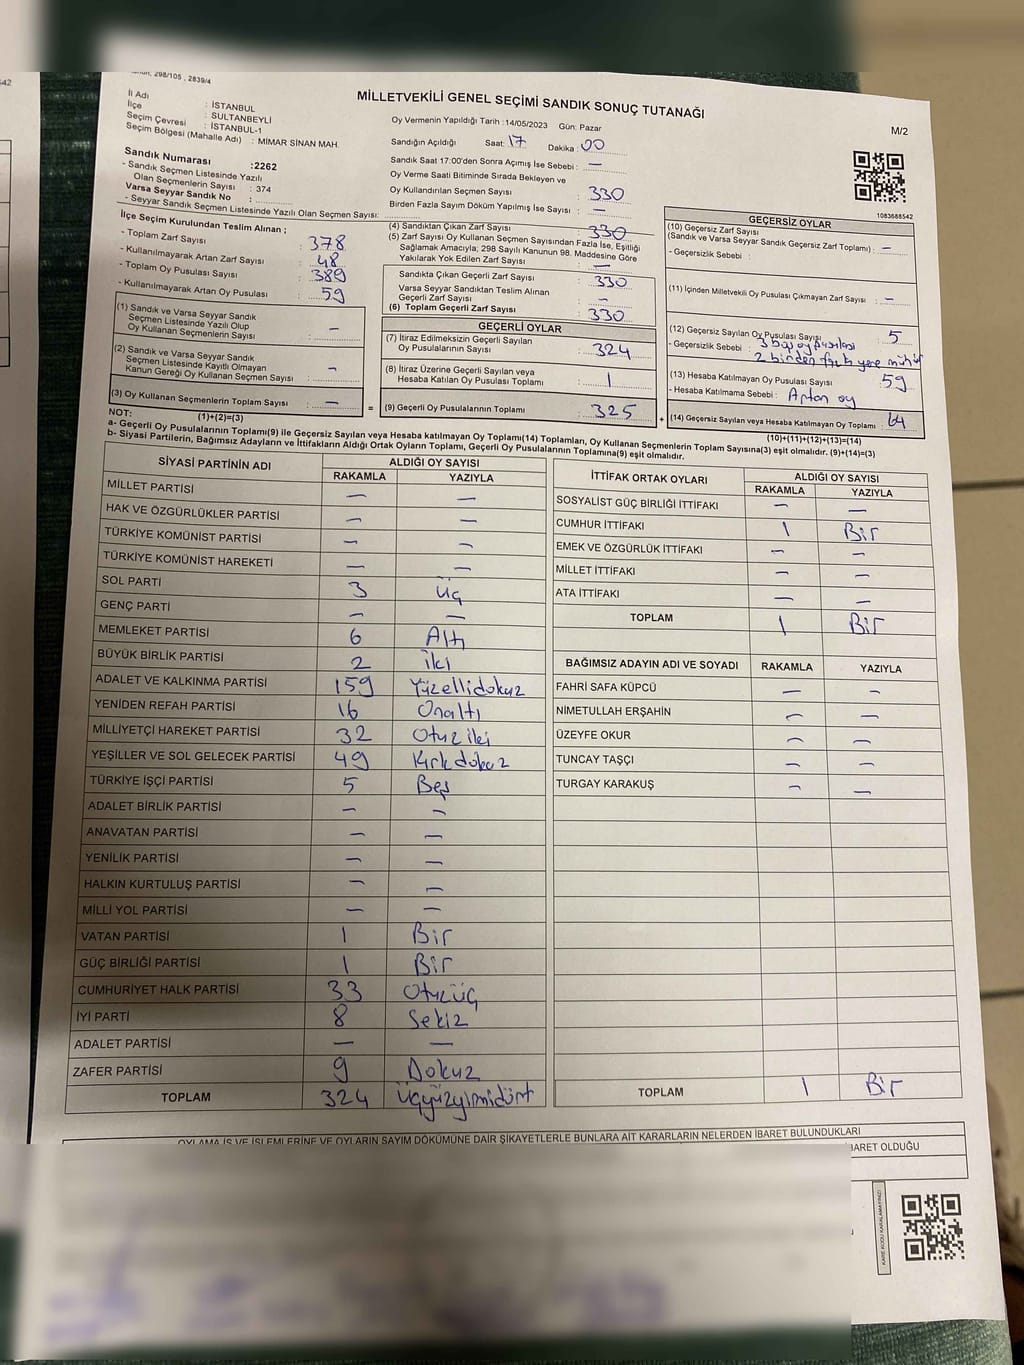 298/105 , 2839/4
MİLLETVEKİLİ GENEL SEÇİMİ SANDIK SONUÇ TUTANAĞI
M/2
İl Adı : İSTANBUL
İlçe : SULTANBEYLİ
Seçim Çevresi : İSTANBUL-1
Seçim Bölgesi (Mahalle Adı) : MİMAR SİNAN MAH.
Oy Vermenin Yapıldığı Tarih :14/05/2023 Gün: Pazar
Sandığın Açıldığı Saat: 17 Dakika : 00
Sandık Saat 17:00'den Sonra Açımış İse Sebebi : —
Oy Verme Saati Bitiminde Sırada Bekleyen ve
Oy Kullandırılan Seçmen Sayısı : 330
Birden Fazla Sayım Döküm Yapılmış İse Sayısı : —
Sandık Numarası :2262
- Sandık Seçmen Listesinde Yazılı
Olan Seçmenlerin Sayısı : 374
Varsa Seyyar Sandık No :
- Seyyar Sandık Seçmen Listesinde Yazılı Olan Seçmen Sayısı:
1083688542
İlçe Seçim Kurulundan Teslim Alınan ;
- Toplam Zarf Sayısı : 378
- Kullanılmayarak Artan Zarf Sayısı : 48
- Toplam Oy Pusulası Sayısı : 389
- Kullanılmayarak Artan Oy Pusulası : 59
(1) Sandık ve Varsa Seyyar Sandık
Seçmen Listesinde Yazılı Olup
Oy Kullanan Seçmenlerin Sayısı : —
(2) Sandık ve Varsa Seyyar Sandık
Seçmen Listesinde Kayıtlı Olmayan
Kanun Gereği Oy Kullanan Seçmen Sayısı : —
(3) Oy Kullanan Seçmenlerin Toplam Sayısı : —
(1)+(2)=(3)
(4) Sandıktan Çıkan Zarf Sayısı : 330
(5) Zarf Sayısı Oy Kullanan Seçmen Sayısından Fazla İse, Eşitliği
Sağlamak Amacıyla; 298 Sayılı Kanunun 98. Maddesine Göre
Yakılarak Yok Edilen Zarf Sayısı : —
Sandıkta Çıkan Geçerli Zarf Sayısı : 330
Varsa Seyyar Sandıktan Teslim Alınan
Geçerli Zarf Sayısı : —
(6) Toplam Geçerli Zarf Sayısı : 330
GEÇERLİ OYLAR
(7) İtiraz Edilmeksizin Geçerli Sayılan
Oy Pusulalarının Sayısı : 324
(8) İtiraz Üzerine Geçerli Sayılan veya
Hesaba Katılan Oy Pusulası Toplamı : 1
= (9) Geçerli Oy Pusulalarının Toplamı : 325 +
GEÇERSİZ OYLAR
(10) Geçersiz Zarf Sayısı
(Sandık ve Varsa Seyyar Sandık Geçersiz Zarf Toplamı) : —
- Geçersizlik Sebebi :
(11) İçinden Milletvekili Oy Pusulası Çıkmayan Zarf Sayısı : —
(12) Geçersiz Sayılan Oy Pusulası Sayısı : 5
- Geçersizlik Sebebi : 3 boş oy pusulası
2 birden fazla yere mühür
(13) Hesaba Katılmayan Oy Pusulası Sayısı : 59
- Hesaba Katılmama Sebebi : Artan oy
(14) Geçersiz Sayılan veya Hesaba Katılmayan Oy Toplamı : 64
(10)+(11)+(12)+(13)=(14)
NOT:
a- Geçerli Oy Pusulalarının Toplamı(9) ile Geçersiz Sayılan veya Hesaba katılmayan Oy Toplamı(14) Toplamları, Oy Kullanan Seçmenlerin Toplam Sayısına(3) eşit olmalıdır. (9)+(14)=(3)
b- Siyasi Partilerin, Bağımsız Adayların ve İttifakların Aldığı Ortak Oyların Toplamı, Geçerli Oy Pusulalarının Toplamına(9) eşit olmalıdır.
SİYASİ PARTİNİN ADI ALDIĞI OY SAYISI
RAKAMLA YAZIYLA
MİLLET PARTİSİ — —
HAK VE ÖZGÜRLÜKLER PARTİSİ — —
TÜRKİYE KOMÜNİST PARTİSİ — —
TÜRKİYE KOMÜNİST HAREKETİ — —
SOL PARTİ 3 Üç
GENÇ PARTİ — —
MEMLEKET PARTİSİ 6 Altı
BÜYÜK BİRLİK PARTİSİ 2 İki
ADALET VE KALKINMA PARTİSİ 159 Yüzellidokuz
YENİDEN REFAH PARTİSİ 16 Onaltı
MİLLİYETÇİ HAREKET PARTİSİ 32 Otuziki
YEŞİLLER VE SOL GELECEK PARTİSİ 49 Kırkdokuz
TÜRKİYE İŞÇİ PARTİSİ 5 Beş
ADALET BİRLİK PARTİSİ — —
ANAVATAN PARTİSİ — —
YENİLİK PARTİSİ — —
HALKIN KURTULUŞ PARTİSİ — —
MİLLİ YOL PARTİSİ — —
VATAN PARTİSİ 1 Bir
GÜÇ BİRLİĞİ PARTİSİ 1 Bir
CUMHURİYET HALK PARTİSİ 33 Otuzüç
İYİ PARTİ 8 Sekiz
ADALET PARTİSİ — —
ZAFER PARTİSİ 9 Dokuz
TOPLAM 324 Üçyüzyirmidört
İTTİFAK ORTAK OYLARI ALDIĞI OY SAYISI
RAKAMLA YAZIYLA
SOSYALİST GÜÇ BİRLİĞİ İTTİFAKI — —
CUMHUR İTTİFAKI 1 Bir
EMEK VE ÖZGÜRLÜK İTTİFAKI — —
MİLLET İTTİFAKI — —
ATA İTTİFAKI — —
TOPLAM 1 Bir
BAĞIMSIZ ADAYIN ADI VE SOYADI RAKAMLA YAZIYLA
FAHRİ SAFA KÜPCÜ — —
NİMETULLAH ERŞAHİN — —
ÜZEYFE OKUR — —
TUNCAY TAŞÇI — —
TURGAY KARAKUŞ — —
TOPLAM 1 Bir
OYLAMA İŞ VE İŞLEMLERİNE VE OYLARIN SAYIM DÖKÜMÜNE DAİR ŞİKAYETLERLE BUNLARA AİT KARARLARIN NELERDEN İBARET BULUNDUKLARI
İBARET OLDUĞU
KARE KODU KARALAMAYINIZ!